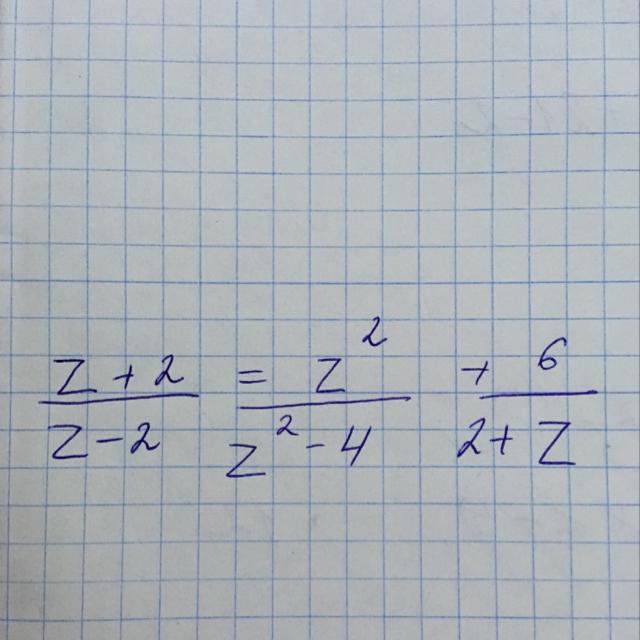 z + 2 = z² + 6
z - 2 z² - 4 2 + z